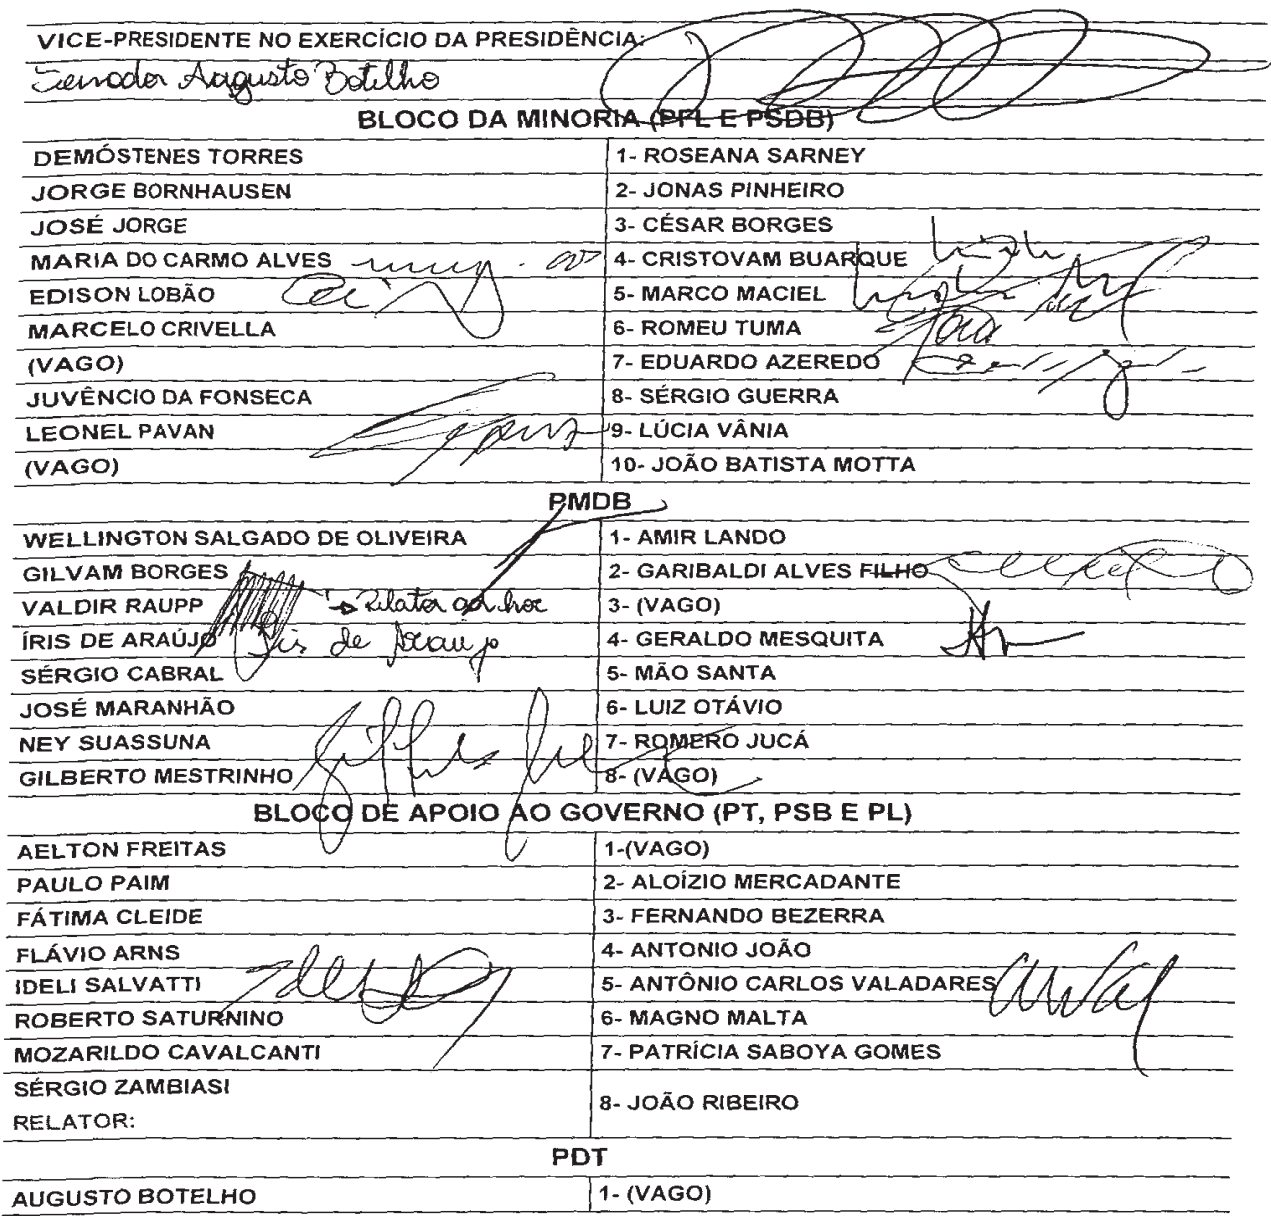 VICE-PRESIDENTE NO EXERCÍCIO DA PRESIDÊNCIA:
Senador Augusto Botelho
BLOCO DA MINORIA (PFL E PSDB)
DEMÓSTENES TORRES 1- ROSEANA SARNEY
JORGE BORNHAUSEN 2- JONAS PINHEIRO
JOSÉ JORGE 3- CÉSAR BORGES
MARIA DO CARMO ALVES 4- CRISTOVAM BUARQUE
EDISON LOBÃO 5- MARCO MACIEL
MARCELO CRIVELLA 6- ROMEU TUMA
(VAGO) 7- EDUARDO AZEREDO
JUVÊNCIO DA FONSECA 8- SÉRGIO GUERRA
LEONEL PAVAN 9- LÚCIA VÂNIA
(VAGO) 10- JOÃO BATISTA MOTTA
PMDB
WELLINGTON SALGADO DE OLIVEIRA 1- AMIR LANDO
GILVAM BORGES 2- GARIBALDI ALVES FILHO
VALDIR RAUPP Relator ad hoc 3- (VAGO)
ÍRIS DE ARAÚJO Iris de Araujo 4- GERALDO MESQUITA
SÉRGIO CABRAL 5- MÃO SANTA
JOSÉ MARANHÃO 6- LUIZ OTÁVIO
NEY SUASSUNA 7- ROMERO JUCÁ
GILBERTO MESTRINHO 8- (VAGO)
BLOCO DE APOIO AO GOVERNO (PT, PSB E PL)
AELTON FREITAS 1-(VAGO)
PAULO PAIM 2- ALOÍZIO MERCADANTE
FÁTIMA CLEIDE 3- FERNANDO BEZERRA
FLÁVIO ARNS 4- ANTONIO JOÃO
IDELI SALVATTI 5- ANTÔNIO CARLOS VALADARES
ROBERTO SATURNINO 6- MAGNO MALTA
MOZARILDO CAVALCANTI 7- PATRÍCIA SABOYA GOMES
SÉRGIO ZAMBIASI
RELATOR: 8- JOÃO RIBEIRO
PDT
AUGUSTO BOTELHO 1- (VAGO)